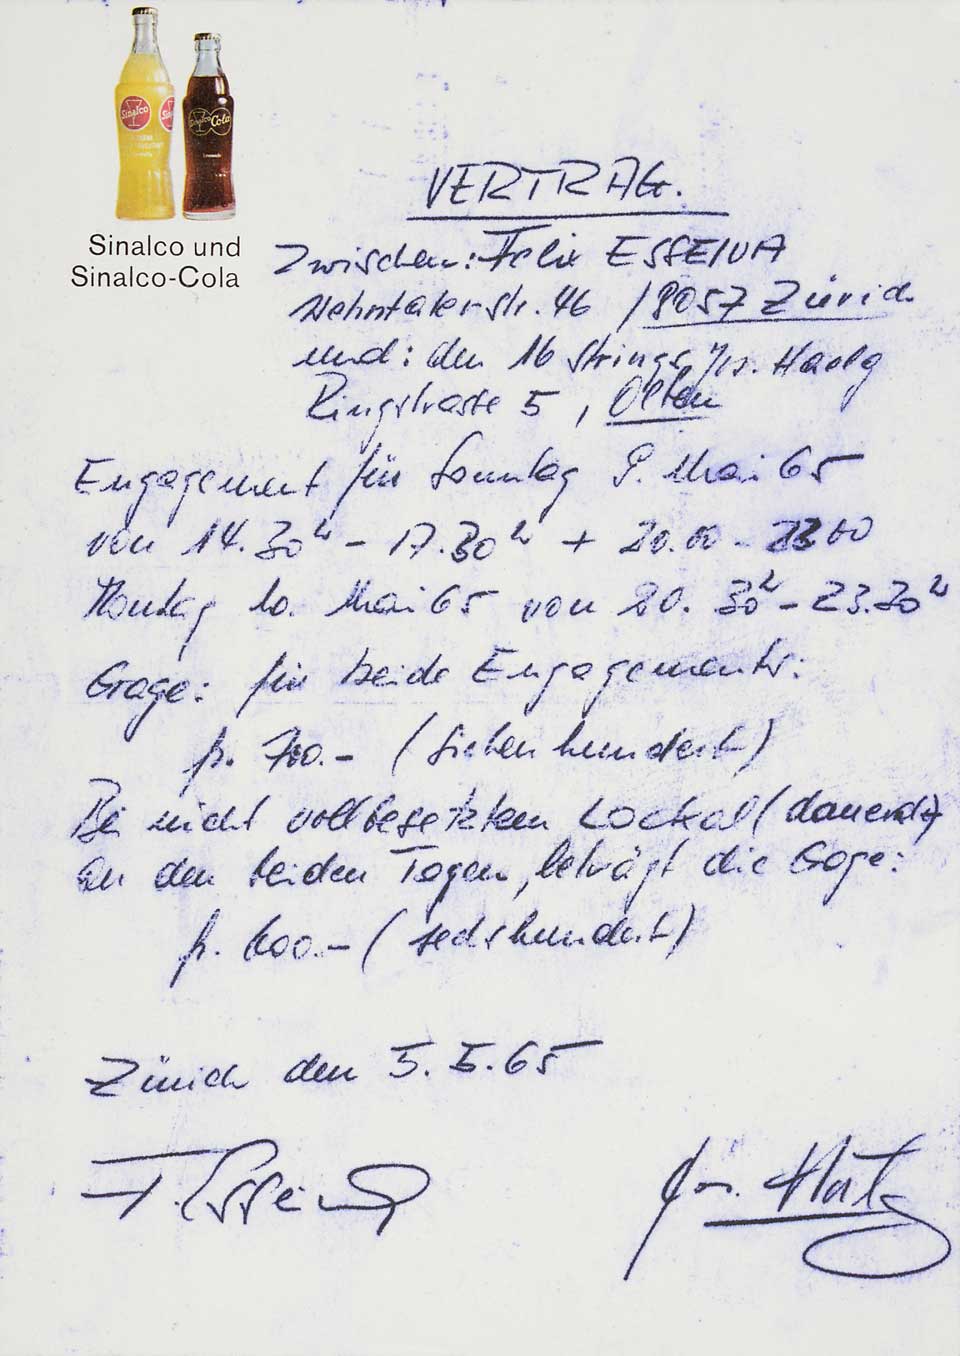 Sinalco
Sinalco Cola
Sinalco und
Sinalco-Cola
VERTRAG.
Zwischen: Felix ESSEIVA
Wehntalerstr. 46 / 8057 Zürich
und: den 16 Strings, Jos. Haelg
Ringstrasse 5, Olten
Engagement für Sonntag 9. Mai 65
von 14.30 h - 17.30 h + 20.00 - 23 00
Montag 10. Mai 65 von 20.30 h - 23.30 h
Gage: für beide Engagements:
fr. 700.- (siebenhundert)
Bei nicht vollbesetztem Lockal (dauernd)
an den beiden Tagen, beträgt die Gage:
fr. 600.- (sechshundert)
Zürich den 5.5.65
F. Esseiva
Jos. Haelg